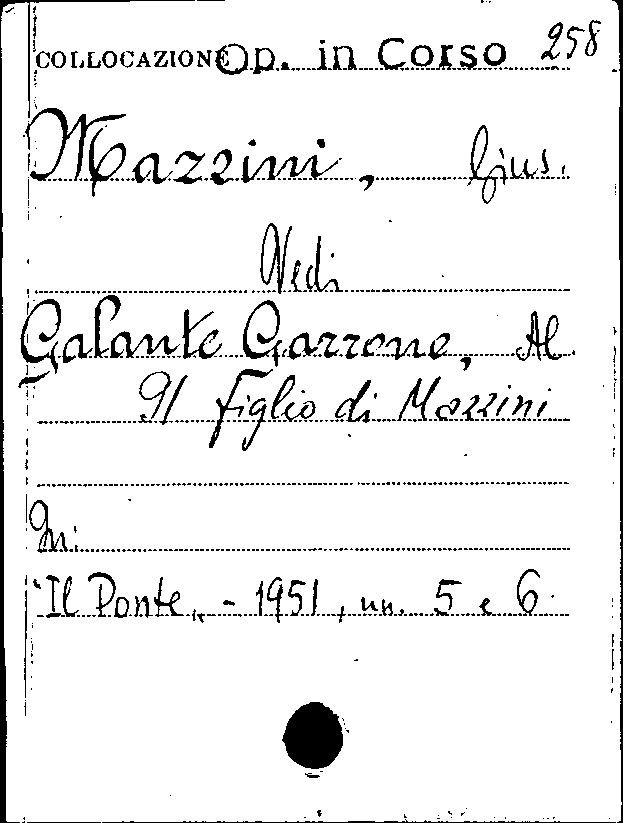 COLLOCAZIONE Op. in Corso 258
Mazzini, Gius.
Vedi
Galante Garrone, Al.
Il figlio di Mazzini
In:
"Il Ponte„ - 1951, nn. 5 e 6.